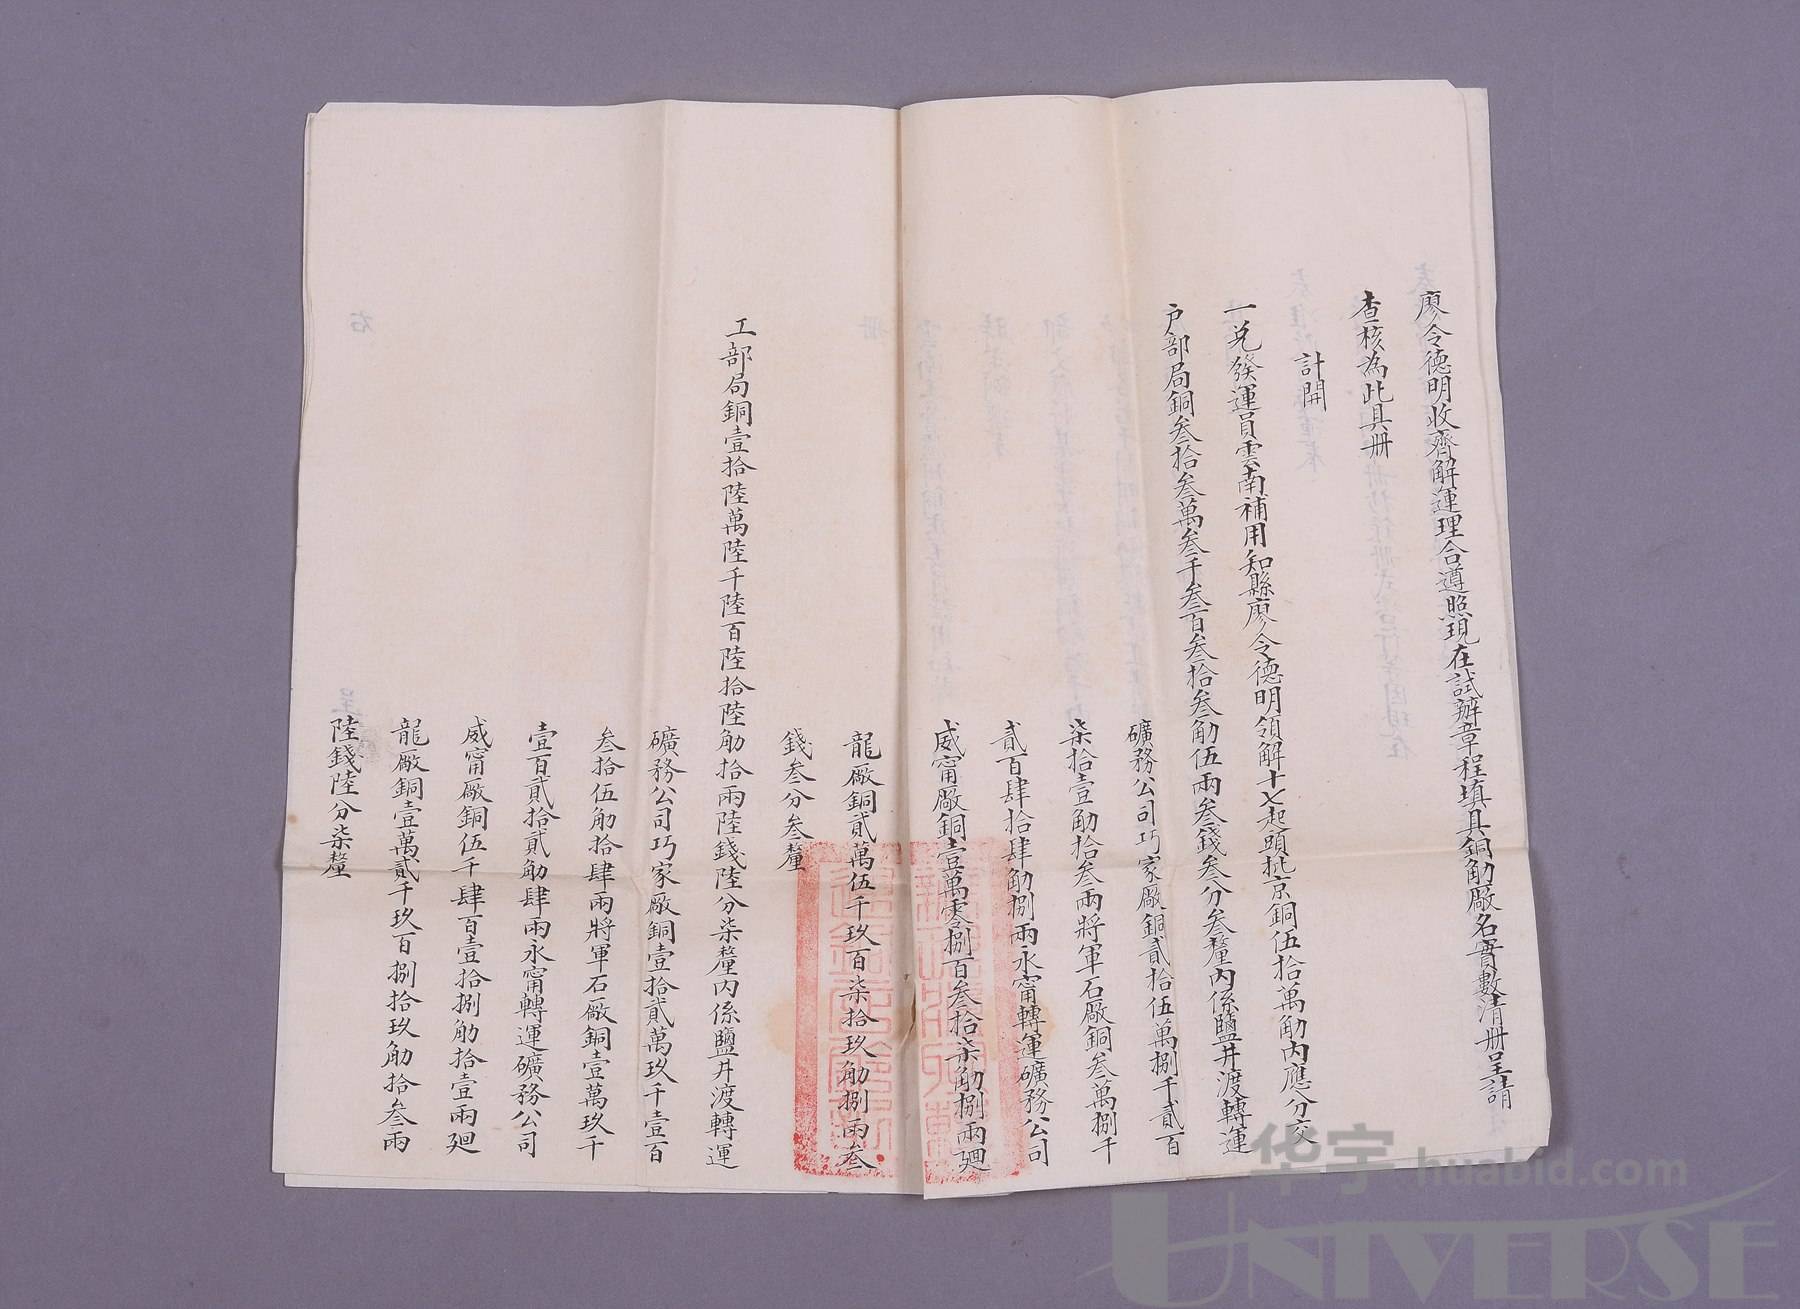 廖令德明收齊解運理合遵照現在試辦章程填具銅觔廠名實數清册呈請
查核為此具册
計開
一兑發運員雲南補用知縣廖令德明領解十七起頭批京銅伍拾萬觔内應分交
户部局銅叁拾叁萬叁千叁百叁拾叁觔伍兩叁錢叁分叁釐内係鹽井渡轉運
礦務公司巧家廠銅貳拾伍萬捌千貳百
柒拾壹觔拾叁兩將軍石廠銅叁萬捌千
貳百肆拾肆觔捌兩永甯轉運礦務公司
威甯廠銅壹萬零捌百叁拾柒觔捌兩廻
龍廠銅貳萬伍千玖百柒拾玖觔捌兩叁
錢叁分叁釐
工部局銅壹拾陸萬陸千陸百陸拾陸觔拾兩陸錢陸分柒釐内係鹽井渡轉運
礦務公司巧家廠銅壹拾貳萬玖千壹百
叁拾伍觔拾肆兩將軍石廠銅壹萬玖千
壹百貳拾貳觔肆兩永甯轉運礦務公司
威甯廠銅伍千肆百壹拾捌觔拾壹兩廻
龍廠銅壹萬貳千玖百捌拾玖觔拾叁兩
陸錢陸分柒釐
华宇 huabid.com
UNIVERSE